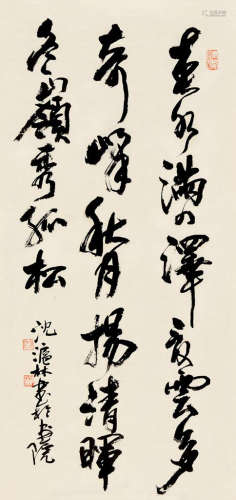 春水满四泽夏云多
奇峰秋月扬清晖
冬岭秀孤松
沈滬林书於书院